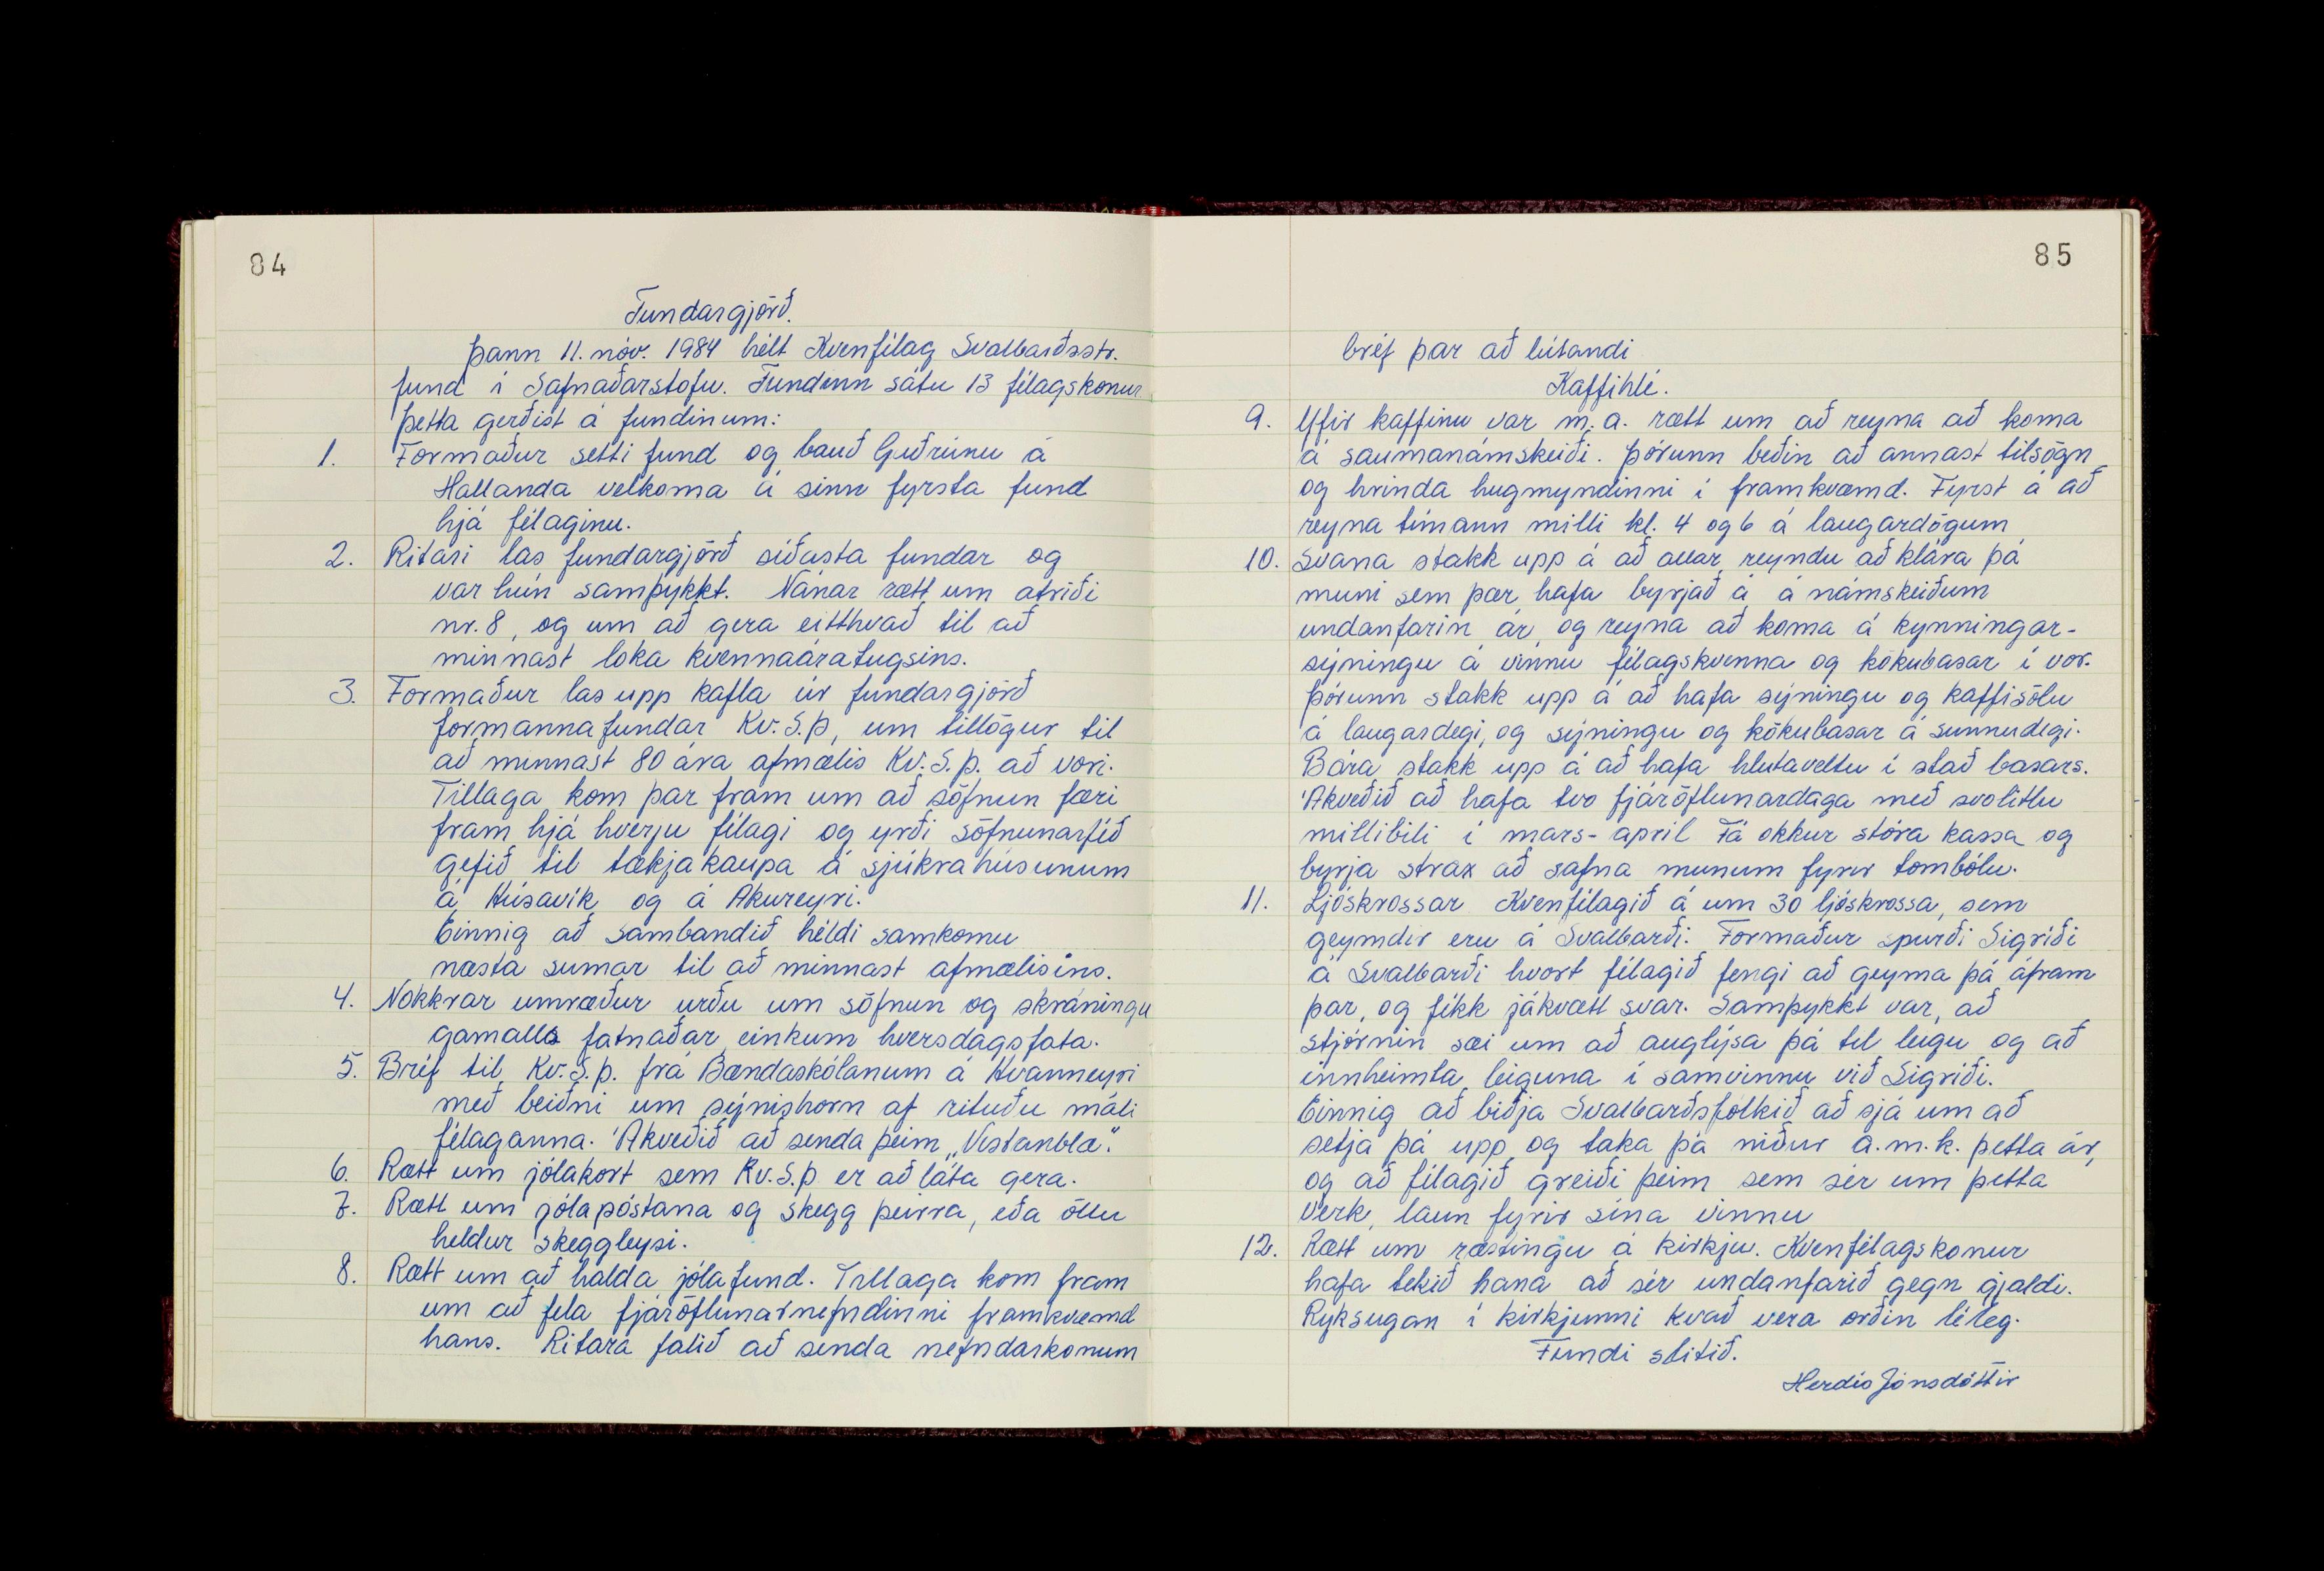 84
Fundargjörð.
Þann 11. nóv. 1984 hélt Kvenfélag Svalbarðsstr.
fund í Safnaðarstofu. Fundinn sátu 13 félagskonur
Þetta gerðist á fundinum:
1. Formaður setti fund og bauð Guðrúnu á
Hallanda velkoma á sinn fyrsta fund
hjá félaginu.
2. Ritari las fundargjörð síðasta fundar og
var hún samþykkt. Nánar rætt um atriði
nr. 8, og um að gera eitthvað til að
minnast loka kvennaáratugsins.
3. Formaður las upp kafla úr fundargjörð
formannafundar Kv.S.Þ, um tillögur til
að minnast 80 ára afmælis Kv.S.Þ. að vori.
Tillaga kom þar fram um að söfnun færi
fram hjá hverju félagi og yrði söfnunarféð
gefið til tækjakaupa á sjúkrahúsunum
á Húsavík og á Akureyri.
Einnig að sambandið héldi samkomu
næsta sumar til að minnast afmælisins.
4. Nokkrar umræður urðu um söfnun og skráningu
gamalls fatnaðar, einkum hversdagsfata.
5. Bréf til Kv.S.Þ. frá Bændaskólanum á Hvanneyri
með beiðni um sýnishorn af rituðu máli
félaganna. Ákveðið að senda þeim „Vestanblæ".
6. Rætt um jólakort sem Kv.S.Þ er að láta gera.
7. Rætt um jólapóstana og skegg þeirra, eða öllu
heldur skeggleysi.
8. Rætt um að halda jólafund. Tillaga kom fram
um að fela fjáröflunarnefndinni framkvæmd
hans. Ritara falið að senda nefndarkonum
85
bréf þar að lútandi
Kaffihlé.
9. Yfir kaffinu var m.a. rætt um að reyna að koma
á saumanámskeiði. Þórunn beðin að annast tilsögn
og hrinda hugmyndinni í framkvæmd. Fyrst á að
reyna tímann milli kl. 4 og 6 á laugardögum
10. Svana stakk upp á að allar reyndu að klára þá
muni sem þær hafa byrjað á á námskeiðum
undanfarin ár, og reyna að koma á kynningar-
sýningu á vinnu félagskvenna og kökubasar í vor.
Þórunn stakk upp á að hafa sýningu og kaffisölu
á laugardegi, og sýningu og kökubasar á sunnudegi.
Bára stakk upp á að hafa hlutaveltu í stað basars.
Ákveðið að hafa tvo fjáröflunardaga með svolitlu
millibili í mars-apríl Fá okkur stóra kassa og
byrja strax að safna munum fyrir tombólu.
11. Ljóskrossar Kvenfélagið á um 30 ljóskrossa, sem
geymdir eru á Svalbarði. Formaður spurði Sigríði
á Svalbarði hvort félagið fengi að geyma þá áfram
þar, og fékk jákvætt svar. Samþykkt var, að
stjórnin sæi um að auglýsa þá til leigu og að
innheimta leiguna í samvinnu við Sigríði.
Einnig að biðja Svalbarðsfólkið að sjá um að
setja þá upp og taka þá niður a.m.k. þetta ár,
og að félagið greiði þeim sem sér um þetta
verk, laun fyrir sína vinnu
12. Rætt um ræstingu á kirkju. Kvenfélagskonur
hafa tekið hana að sér undanfarið gegn gjaldi.
Ryksugan í kirkjunni kvað vera orðin léleg.
Fundi slitið.
Herdís Jónsdóttir